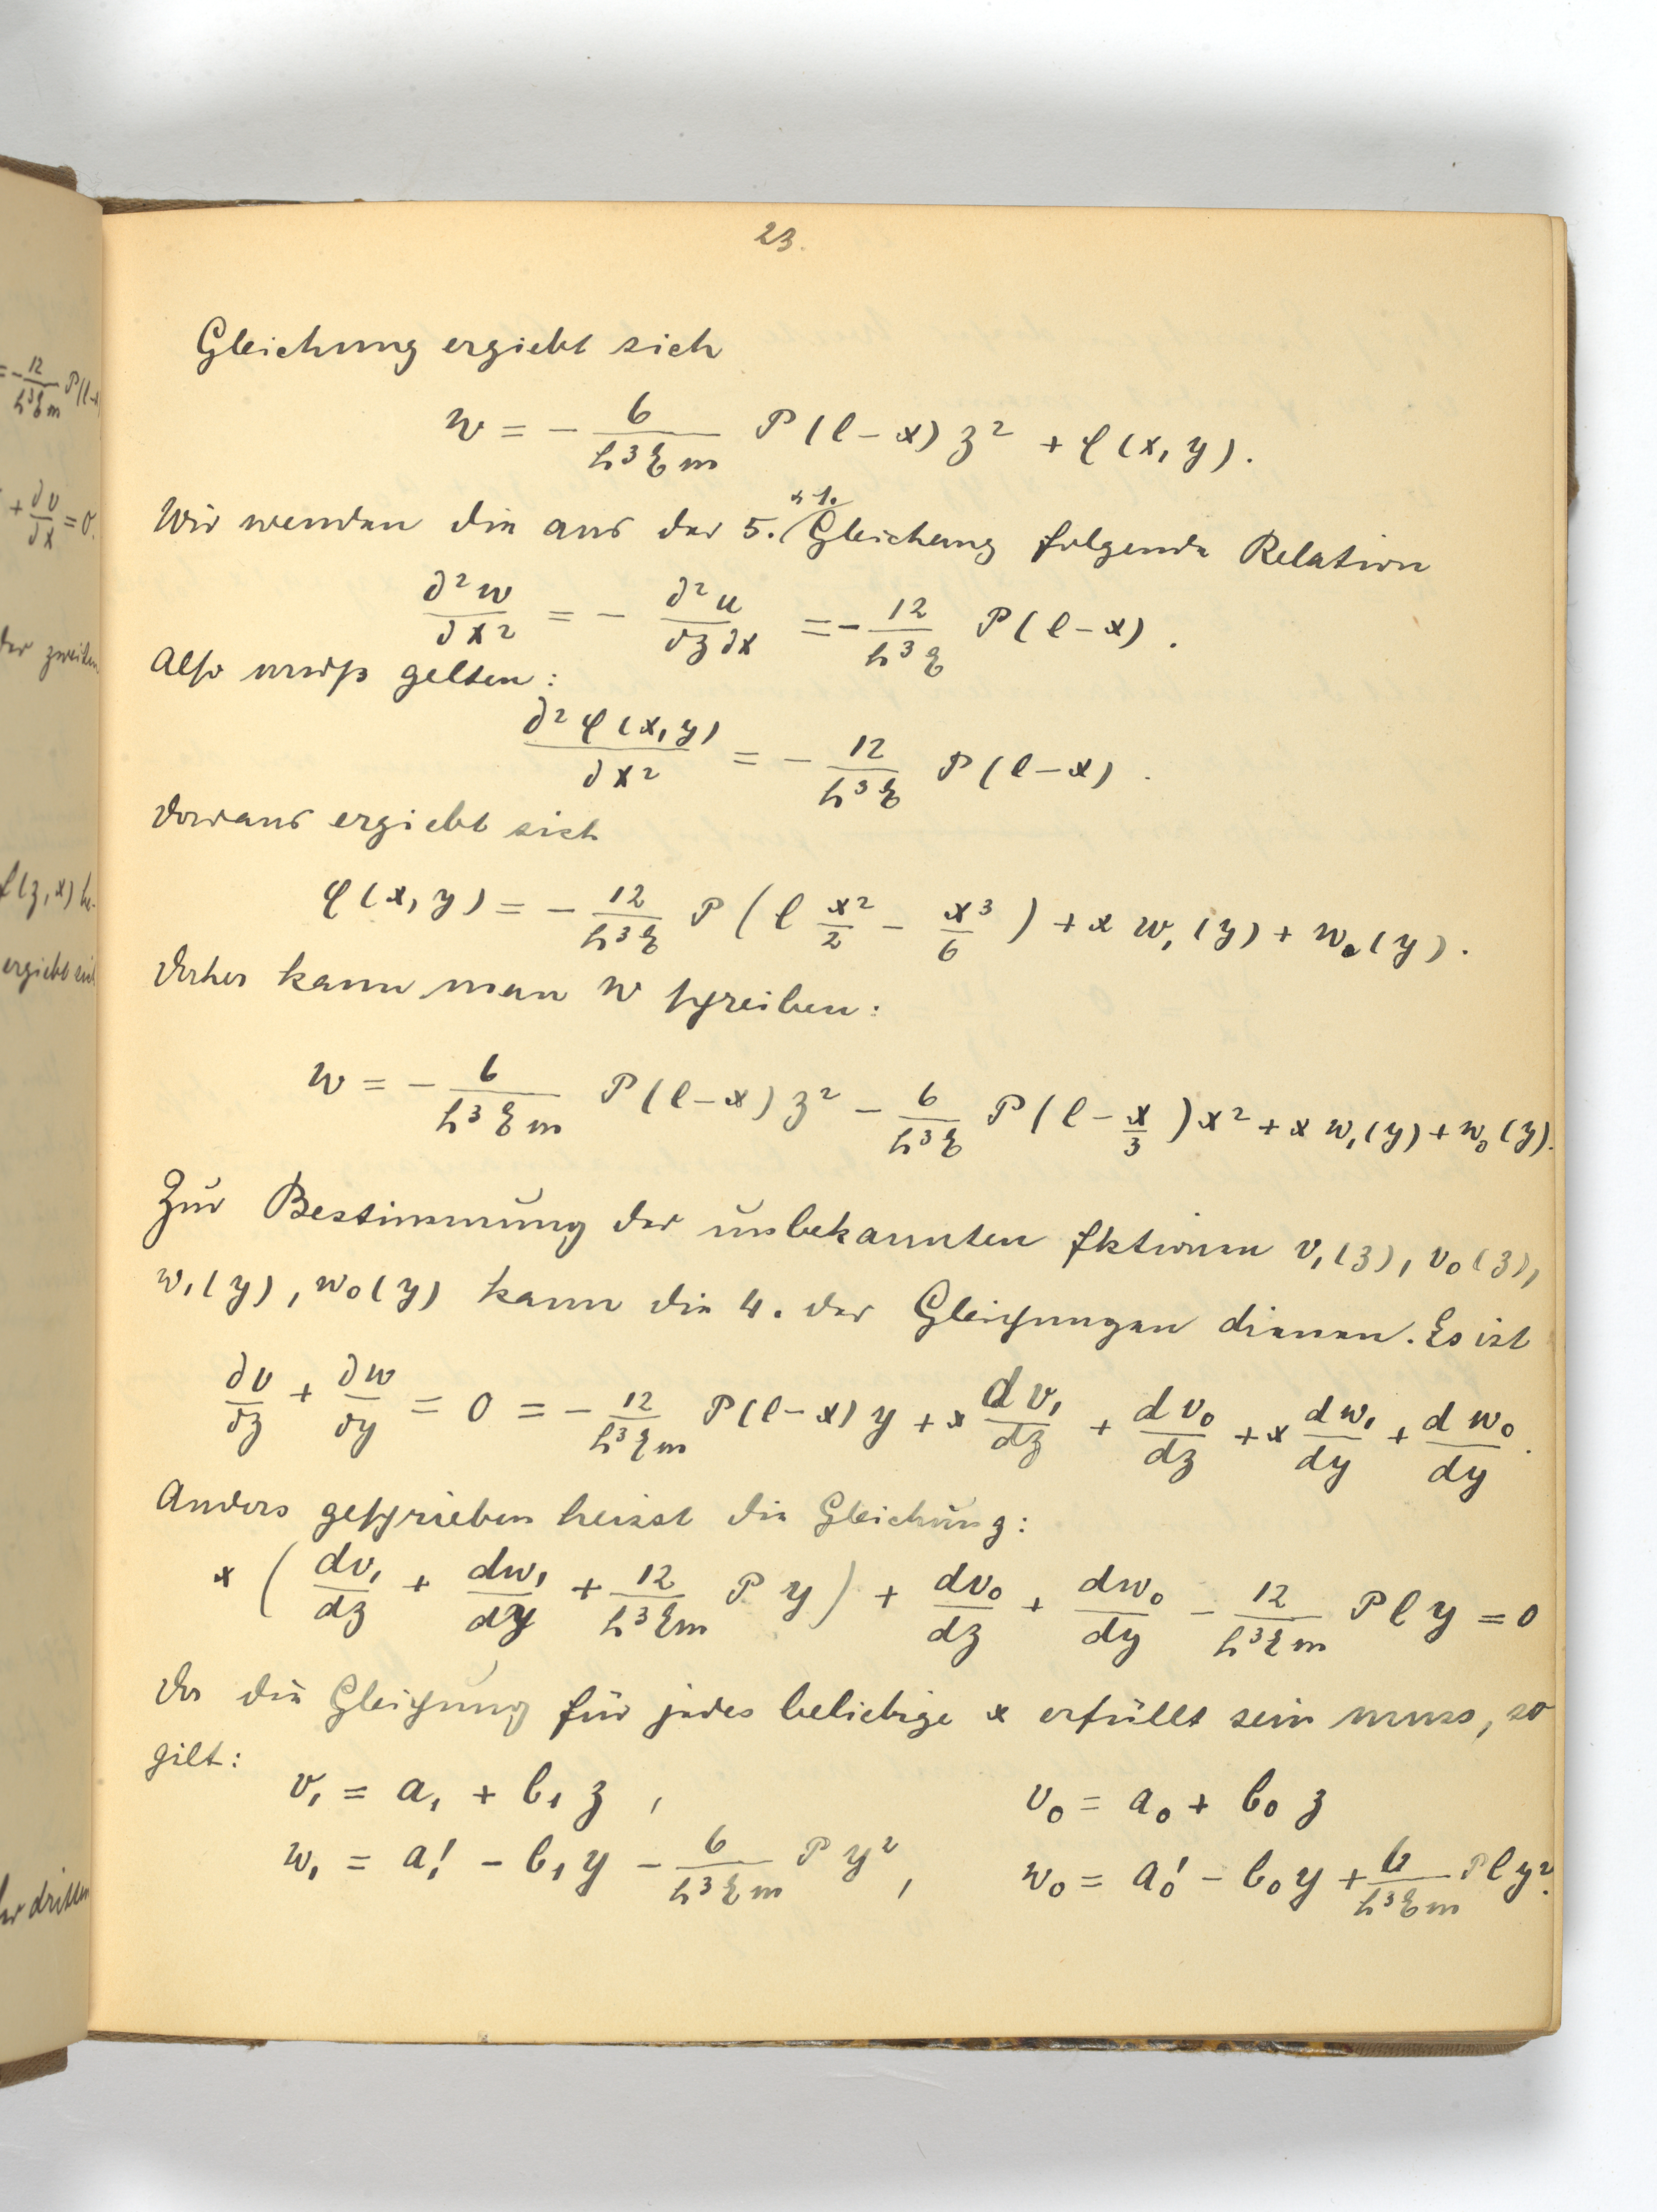 23.
Gleichung ergiebt sich
w = - 6/(h³ξm) P(l-x) z² + φ(x,y).
u 1.
Wir wenden die aus der 5. Gleichung folgende Relation
∂²w/∂x² = - ∂²u/∂z∂x = - 12/(h³ξ) P(l-x).
Also muß gelten:
∂²φ(x,y)/∂x² = - 12/(h³ξ) P(l-x).
Daraus ergiebt sich
φ(x,y) = - 12/(h³ξ) P(l x²/2 - x³/6) + x w₁(y) + w₀(y).
Daher kann man w schreiben:
w = - 6/(h³ξm) P(l-x) z² - 6/(h³ξ) P(l - x/3) x² + x w₁(y) + w₀(y).
Zur Bestimmung der unbekannten Fktionen v₁(z), v₀(z),
w₁(y), w₀(y) kann die 4. der Gleichungen dienen. Es ist
∂v/∂z + ∂w/∂y = 0 = - 12/(h³ξm) P(l-x) y + x dv₁/dz + dv₀/dz + x dw₁/dy + dw₀/dy.
Anders geschrieben heisst die Gleichung:
x (dv₁/dz + dw₁/dy + 12/(h³ξm) P y) + dv₀/dz + dw₀/dy - 12/(h³ξm) P l y = 0
Da die Gleichung für jedes beliebige x erfüllt sein muss, so
gilt:
v₁ = a₁ + b₁ z , v₀ = a₀ + b₀ z
w₁ = a₁' - b₁ y - 6/(h³ξm) P y² , w₀ = a₀' - b₀ y + 6/(h³ξm) P l y².
= - 12/(h³ξm) P(l-x
+ ∂v/∂x = 0.
der zweiten
f(z,x) be-
ergiebt sich
der dritten